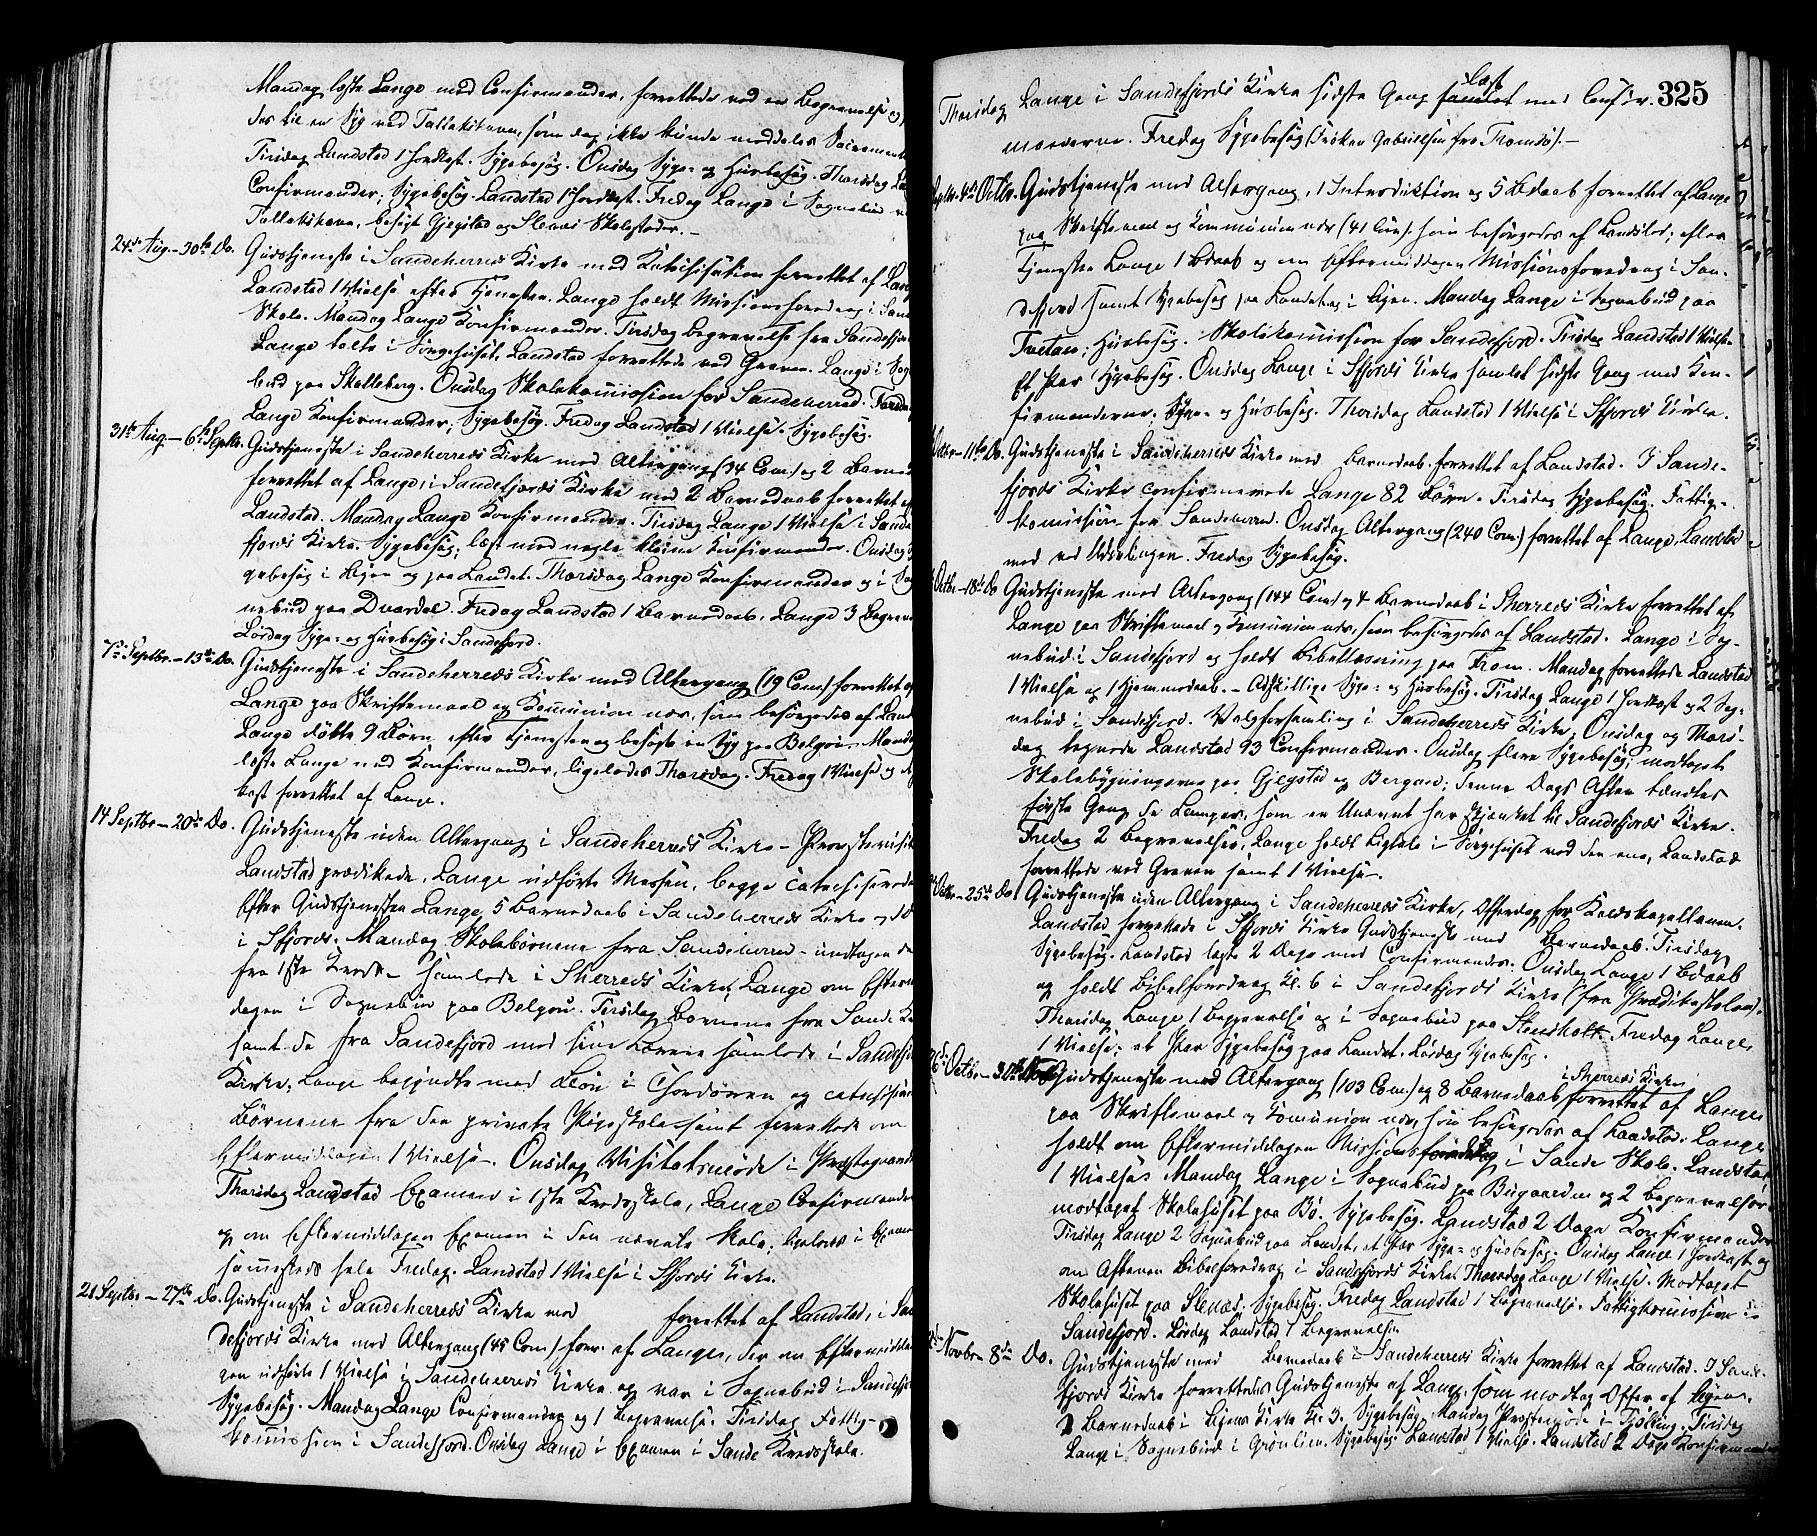 Mandag læste Lange med Confirmander, forrettede ved en Begravelse og
des til en Syg ved Tallakshavn, som dog ikke kunde meddeles Sacramentet
Tirsdag Landstad 1 Jordkast. Sygebesøg. Onsdag Syge- og Husbesøg. Thorsdag
Confirmander, Sygebesøg. Landstad 1 Jordkast. Fredag Lange i Sognebud
Tallakshavn, besøgt Gjegstad og Stenæs Skolesteder.-
24de Aug.-30te Do. Gudstjeneste i Sandeherreds Kirke med Katechisation forrettet af Lange
Landstad 1 Vielse efter Tjenesten. Lange holdt Missionsforedrag i Sande
Skole. Mandag Lange Konfirmander. Tirsdag Begravelse fra Sandefjord
Lange talte i Sørgehuset, Landstad forrettede ved Graven. Lange i Sogne
bud paa Skalleberg. Onsdag Skolekomission for Sandeherred. Torsdag
Lange Konfirmander, Sygebesøg. Fredag Landstad 1 Vielse. Sygebesøg.
31te Aug.-6te Septbr. Gudstjeneste i Sandeherreds Kirke med Altergang (34 Com) og 2 Barned
forrettet af Lange, i Sandefjords Kirke med 2 Barnedaab forrettet af
Landstad. Mandag Lange Konfirmander. Tirsdag Lange 1 Vielse i Sande
fjords Kirke. Sygebesøg; læst med nogle kleine Konfirmander. Onsdag Sy
gebesøg i Byen og paa Landet. Thorsdag Lange Konfirmander og i Sog
nebud paa Dvardal. Fredag Landstad 1 Barnedaab, Lange 3 Begrav
Lørdag Syge- og Husbesøg i Sandefjord.
7de Septbr.-13de Do. Gudstjeneste i Sandeherreds Kirke med Altergang (19 Com) forrettet af
Lange paa Skriftemaal og Kommunion nær, som besørgedes af Land
Lange døbte 9 Børn efter Tjenesten og besøgte en Syg paa Belgøen. Mandag
læste Lange med Konfirmander, ligeledes Thorsdag. Fredag 1 Vielse og
kast forrettet af Lange.
14 Septbr-20de Do. Gudstjeneste uden Altergang i Sandeherreds Kirke - Provstevisit
Landstad prædikede, Lange udførte Messen, begge catechiserede
Efter Gudstjenesten Lange 5 Barnedaab i Sandeherreds Kirke og 10
i Sfjords. Mandag Skolebørnene fra Sandeherred - undtagen de
fra 1ste Kreds - samlede i Sherreds Kirke, Lange om Efterm
dagen i Sognebud paa Belgøen. Tirsdag Børnene fra Sande
samt de fra Sandefjord med sine Lærere samlede i Sandefj
Kirke, Lange begyndte med Bøn i Chordøren og catechiserede
Børnene fra den private Pigeskole samt forrettede om
Eftermiddagen 1 Vielse. Onsdag Visitatsmøde i Præstegaarden
Thorsdag Landstad Examen i 1ste Kredsskole, Lange Confirmander
og om Eftermiddagen Examen i den nævnte Skole, ligeledes i Examen
sammesteds hele Fredag. Landstad 1 Vielse i Sfjords Kirke.
21 Septbr.-27de Do. Gudstjeneste i Sandeherreds Kirke med forrettet af Landstad, i San
defjords Kirke med Altergang (45 Com) forr. af Lange, der om Eftermidda
gen udførte 1 Vielse i Sandeherreds Kirke og var i Sognebud i Sandefjord
Sygebesøg. Mandag Lange Confirmander og 1 Begravelse. Tirsdag Fattig-
komission i Sandefjord. Onsdag Lange i Examen i Sande Kredsskole.
325
Thorsdag Lange i Sandefjords Kirke sidste Gang læst med Confir-
manderne. Fredag Sygebesøg (Frøken Gabrielsen fra Tromsø).-
Septbr-4de Octbr. Gudstjeneste med Altergang, 1 Introduktion og 5 Bdaab forrettet af Lange
paa Skriftemaal og Kommunion nær (41 Com), som besørgedes af Landstad; efter
Tjenesten Lange 1 Bdaab og om Eftermiddagen Missionsforedrag i San-
defjord samt Sygebesøg paa Landet og i Byen. Mandag Lange i Sognebud paa
Fretan; Husbesøg. Skolekomission for Sandefjord. Tirsdag Landstad 1 Vielse
Et Par Sygebesøg. Onsdag Lange i Sfjords Kirke samlet sidste Gang med Kon-
firmanderne. Syge- og Husbesøg. Thorsdag Landstad 1 Vielse i Sfjords Kirke.
Octbr-11te Do. Gudstjeneste i Sandeherreds Kirke med Barnedaab forrettet af Landstad. I Sande-
fjords Kirke confirmerede Lange 82 Børn. Tirsdag Sygebesøg. Fattig-
komission for Sandeherred. Onsdag Altergang (240 Com) forrettet af Lange, Landstad
med ved Uddelingen. Fredag Sygebesøg.
Octbr-18de Do Gudstjeneste med Altergang (144 Com) og 4 Barnedaab i Sherreds Kirke forrettet af
Lange paa Skriftemaal og Kommunion nær, som besørgedes af Landstad. Lange i Sog-
nebud i Sandefjord og holdt Bibellæsning paa Fram. Mandag forrettede Landstad
1 Vielse og 1 Hjemmedaab. - Adskillige Syge- og Husbesøg. Tirsdag Lange 1 Jordkast og 2 Sog-
nebud i Sandefjord. Valgforsamling i Sandeherreds Kirke. Onsdag og Thors-
dag tegnede Landstad 93 Confirmander. Onsdag flere Sygebesøg; modtaget
Skolebygningerne paa Gjegstad og Bergan; denne Dags Aften tændtes
første Gang de Lamper, som en Unævnt har skjænket til Sandefjords Kirke.
Fredag 2 Begravelser, Lange holdt Ligtale i Sørgehuset ved den ene, Landstad
forrettede ved Graven samt 1 Vielse.
Octbr-25de Do Gudstjeneste uden Altergang i Sandeherreds Kirke, Offerdag for Residskapellanen.
Landstad forrettede i Sfjords Kirke Gudstjeneste med Barnedaab. Tirsdag
Sygebesøg. Landstad læste 2 Dage med Confirmander. Onsdag Lange 1 Bdaab
og holdt Bibelforedrag Kl. 6 i Sandefjords Kirke (fra Prædikestolen).
Thorsdag Lange 1 Begravelse og i Sognebud paa Stensholt. Fredag Lange
1 Vielse; et Par Sygebesøg paa Landet, Lørdag Sygebesøg.
26de Octbr-31te Gudstjeneste med Altergang (103 Com) og 8 Barnedaab i Sherreds Kirke forrettet af Lange
paa Skriftemaal og Komunion nær, som besørgedes af Landstad. Lange
holdt om Eftermiddagen Missionsforedrag i Sande Skole. Landstad
1 Vielse. Mandag Lange i Sognebud paa Bugaarden og 2 Begravelser
modtaget Skolehuset paa Bø. Sygebesøg. Landstad 2 Dage Konfirmander
Tirsdag Lange 2 Sognebud paa Landet, et Par Syge- og Husbesøg. Onsdag Lange 1 Jordkast og
om Aftenen Bibelforedrag i Sandefjords Kirke. Thorsdag Lange 1 Vielse. Modtaget
Skolehuset paa Stenæs. Sygebesøg. Fredag Landstad 1 Begravelse. Fattigkomission i
Sandefjord. Lørdag Landstad 1 Begravelse.
Novbr 8de Do. Gudstjeneste med Barnedaab i Sandeherreds Kirke forrettet af Landstad. I Sande-
fjords Kirke forrettedes Gudstjeneste af Lange, som modtog Offer af Byen.
2 Barnedaab i Byens Kirke Kl. 3. Sygebesøg. Mandag Provstemøde i Tjølling. Tirsdag
Lange i Sognebud i Grønlien. Sygebesøg. Landstad 1 Vielse. Landstad 2 Dage Konfirmander